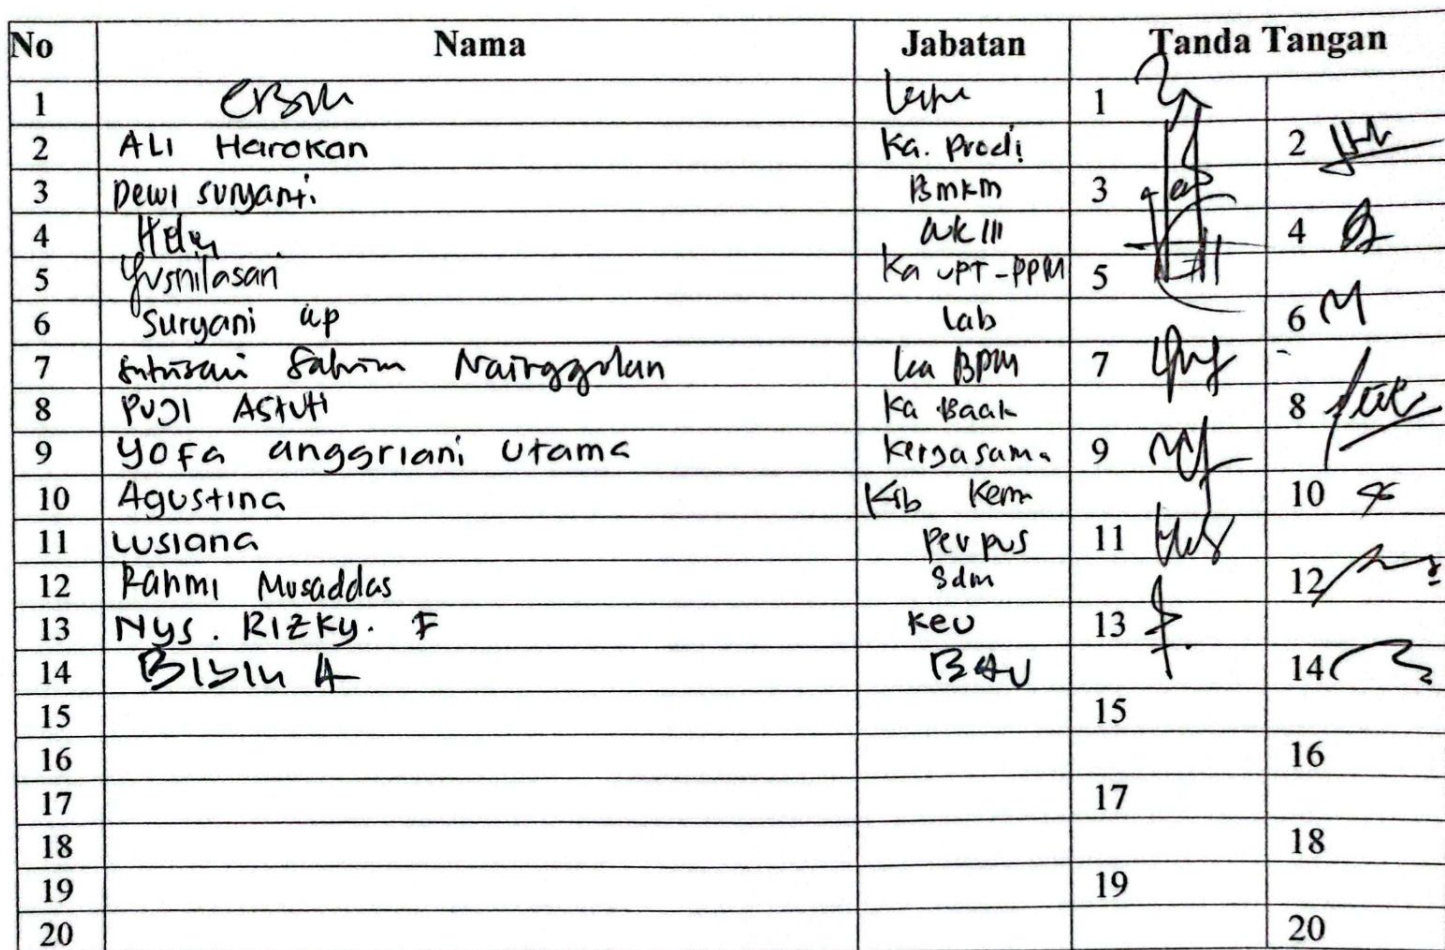 No Nama Jabatan Tanda Tangan
1 1
2 ALI Harokan Ka. Prodi 2
3 Dewi suryanti Bmkm 3
4 WK III 4
5 Yusnilasari Ka UPT-PPM 5
6 Suryani Lab 6
7 Nainggolan Ka BPM 7
8 PUJI ASTUTI Ka Baak 8
9 Yofa anggriani Utama Kerjasama 9
10 Agustina 10
11 Lusiana Perpus 11
12 Rahmi Musaddas Sdm 12
13 Nys. RIZKy. F Keu 13
14 BAU 14
15 15
16 16
17 17
18 18
19 19
20 20